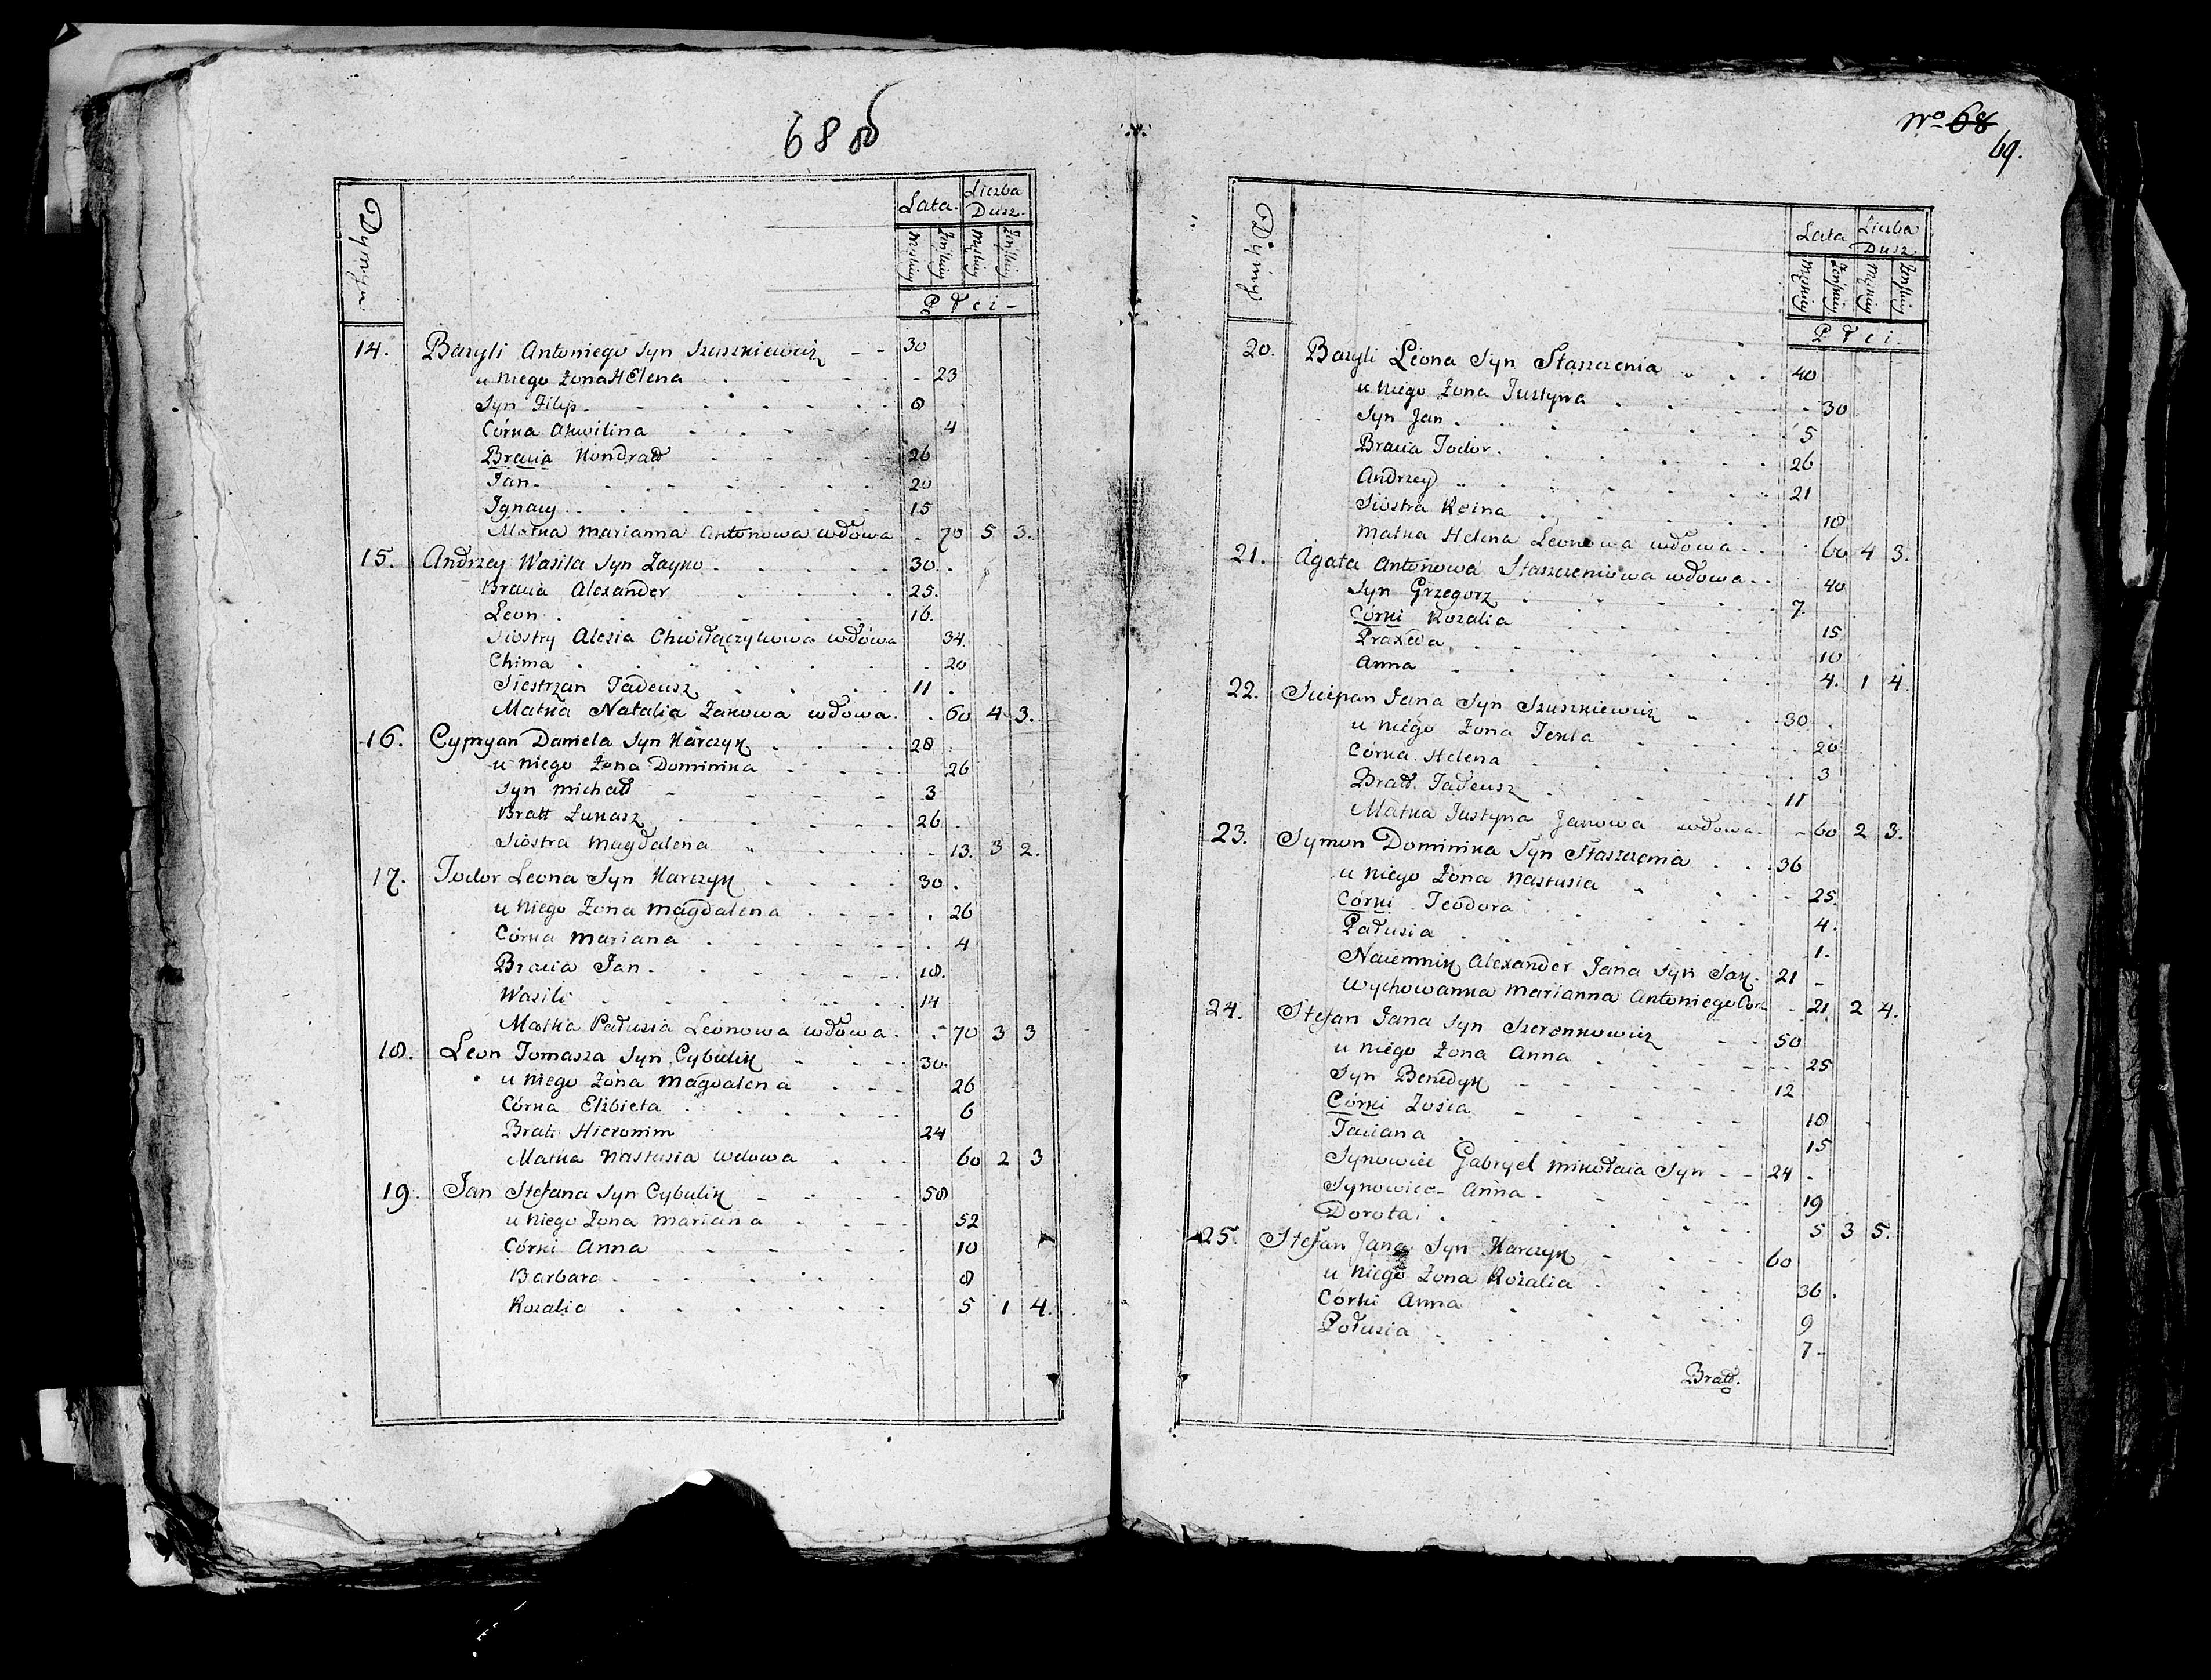 68 об
Dymy
Lata. Liczba Dusz.
Męzkiey Żeńskiey Męzkiey Żeńskiey
Płci
14. Bazyli Antoniego Syn Szuszkiewicz 30
u niego Żona Helena 23
Syn Filip 8
Córka Akwilina 4
Bracia Kondratt 26
Jan 20
Ignacy 15
Matka Marianna Antonowa wdowa 70 5 3.
15. Andrzey Wasila Syn Zayko 30
Bracia Alexander 25.
Leon 16.
Siostry Alesia wdowa 34.
Chima 20
Siestrzan Tadeusz 11
Matka Natalia Zakowa wdowa 60 4 3.
16. Cypryan Daniela Syn Karczyk 28
u niego Żona Dominika 26
Syn Michał 3
Bratt Łukasz 26
Siostra Magdalena 13. 3 2.
17. Todor Leona Syn Karczyk 30
u niego Żona Magdalena 26
Córka Mariana 4
Bracia Jan 18.
Wasili 14
Matka Pałusia Leonowa wdowa 70 3 3
18. Leon Tomasza Syn Cybulik 30
u niego Żona Magdalena 26
Córka Elżbieta 6
Bratt Hieronim 24
Matka Nastusia wdowa 60 2 3
19. Jan Stefana Syn Cybulik 58
u niego Żona Mariana 52
Córki Anna 10
Barbara 8
Rozalia 5 1 4.
No 68
69.
Dymy
Lata Liczba Dusz.
Męzkiey Żeńskiey Męzkiey Żeńskiey
Płci
20. Bazyli Leona Syn Staszczenia 40
u niego Żona Justyna 30
Syn Jan 5
Bracia Todor 26
Andrzey 21
Siostra Reina 18
Matka Helena Leonowa wdowa 60 4 3.
21. Agata Antonowa Staszczeniowa wdowa 40
Syn Grzegorz 7.
Córki Rozalia 15
Praxeda 10
Anna 4. 1 4.
22. Sciepan Jana Syn Szuszkiewicz 30
u niego Żona Tekla 20
Córka Helena 3
Bratt Tadeusz 11
Matka Justyna Janowa wdowa 60 2 3.
23. Symon Dominika Syn Staszczenia 36
u niego Żona Nastusia 25.
Córki Teodora 4.
Pałusia 1.
Naiemnik Alexander Jana Syn Sak 21
Wychowanka Marianna Antoniego Cork 21. 2 4.
24. Stefan Jana Syn Szeronkowicz 50
u niego Żona Anna 25
Syn Benedyk 12
Córki Zosia 18
Taciana 15
Synowiec Gabryel Mikołaia Syn 24
Synowice Anna 19
Dorota 5 3 5.
25. Stefan Jana Syn Karczyk 60
u niego Żona Rozalia 36.
Córki Anna 9
Połusia 7
Bratt.